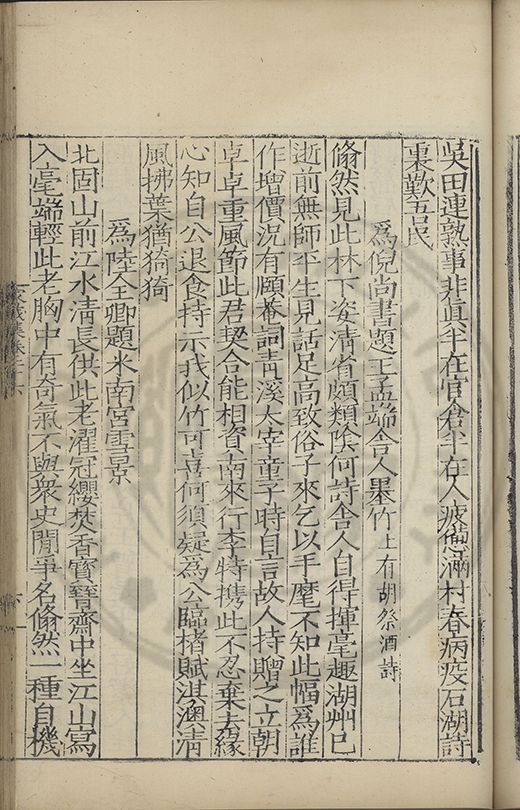 吳田連熟事非真半在官倉半在人疲憊滿村春病疫石湖詩
裏歎吾民
爲倪尚書題王孟端舍人墨竹上有胡祭酒詩
翛然見此林下姿清省頗類陰何詩舍人自得揮毫趣湖州已
逝前無師平生見話足高致俗子來乞以手麾不知此幅爲誰
作增價況有頤菴詞青溪大宰童子時自言故人持贈之立朝
卓卓重風節此君契合能相資南來行李特携此不忍棄去緣
心知自公退食持示我似竹可喜何須疑爲公臨楮賦淇澳清
風拂葉猶猗猗
爲陸全卿題米南宮雪景
北固山前江水清長供此老濯冠纓焚香寳晉齋中坐江山寫
入毫端輕此老胸中有奇氣不與衆史閒爭名翛然一種自機